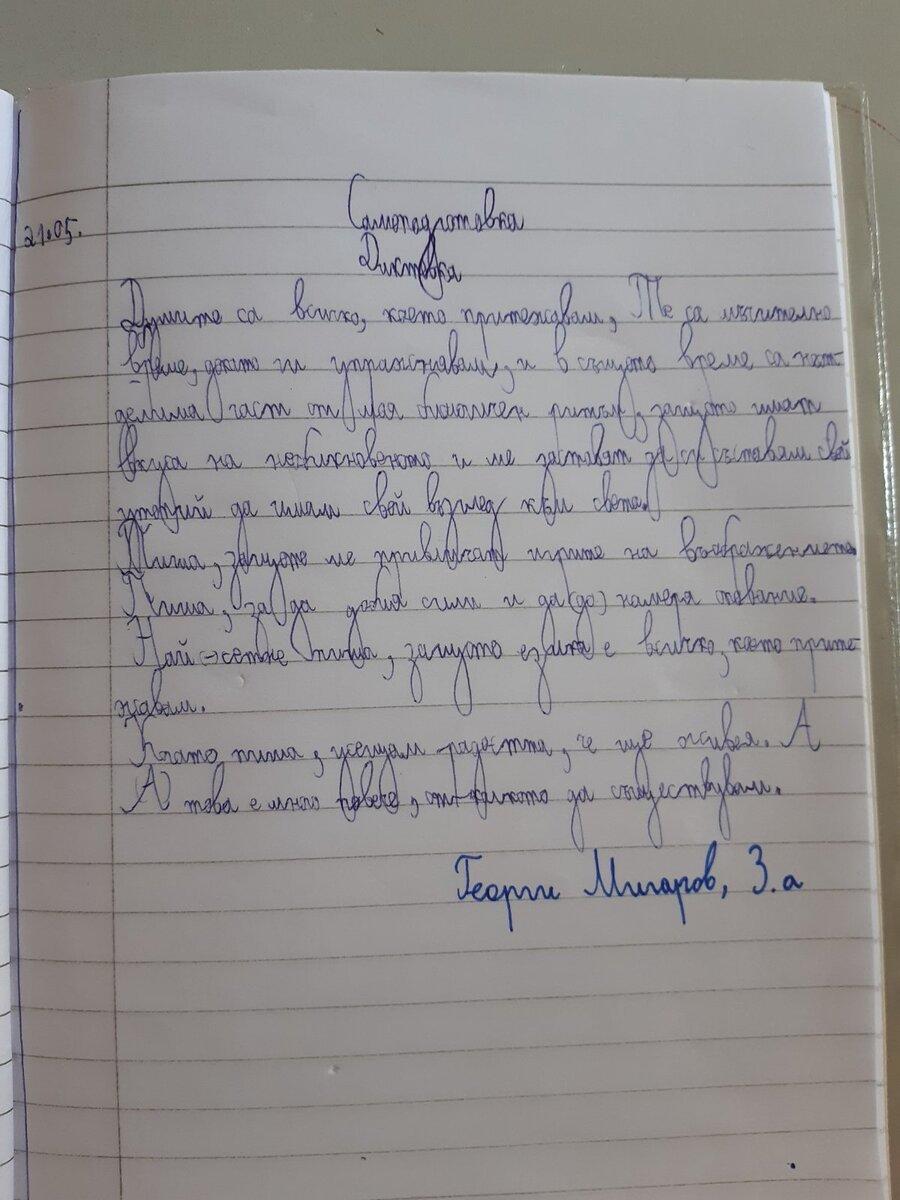 21.05.
Самоподготовка
Диктовка
Думите са всичко, което притежавам, Те са мъчително
време, докато ги упражнявам, и в същото време са неот-
делима част от моя биологичен ритъм, защото имат
вкуса на необикновеното и ме заставят да си съставям свой
да имам свой възглед към света.
Пиша, защото ме привличат игрите на въображението.
Пиша, за да добия сили и да (до) намеря опование.
Най-сетне пиша, защото езика е всичко, което прите-
жавам.
Когато пиша, усещам радостта, че ще живея. А
А това е много повече, отколкото да съществувам.
Георги Мигаров, 3.а